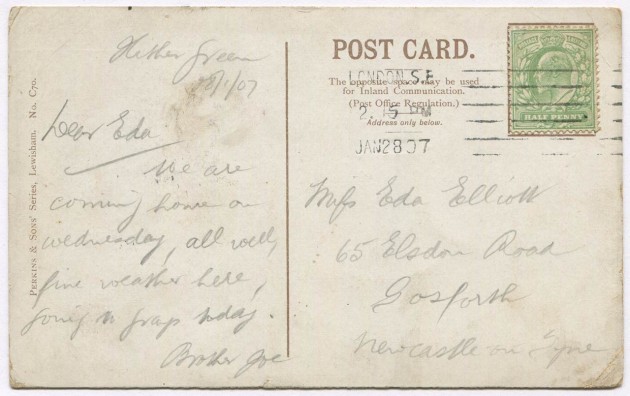 Hither Green
28/1/07
Dear Eda
We are
coming home on
wednesday, all well,
fine weather here,
going to today.
Brother Joe
PERKINS & SONS' Series, Lewisham. No. C70.
POST CARD.
The opposite space may be used
for Inland Communication.
(Post Office Regulation.)
Address only below.
LONDON S.E.
2.15 PM
JAN 28 07
HALF PENNY
Miss Eda Elliott
65 Elsdon Road
Gosforth
Newcastle on Tyne